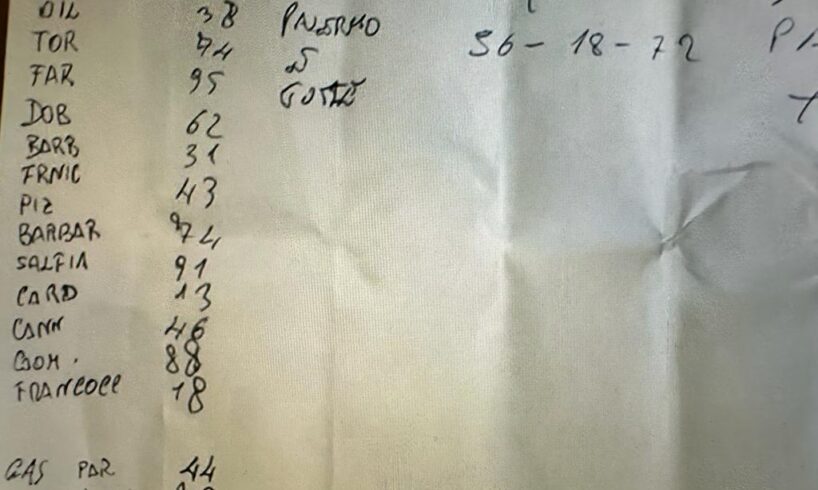 DIL 38
TOR 74
FAR 95
DOB 62
BARB 31
FRNIC
PIZ 43
BARBAR 74
SALFIA 91
CARD 13
CANN 46
GOM. 88
FRANCOCC 18
GAS PAR 44
PALERMO
56-18-72 PA